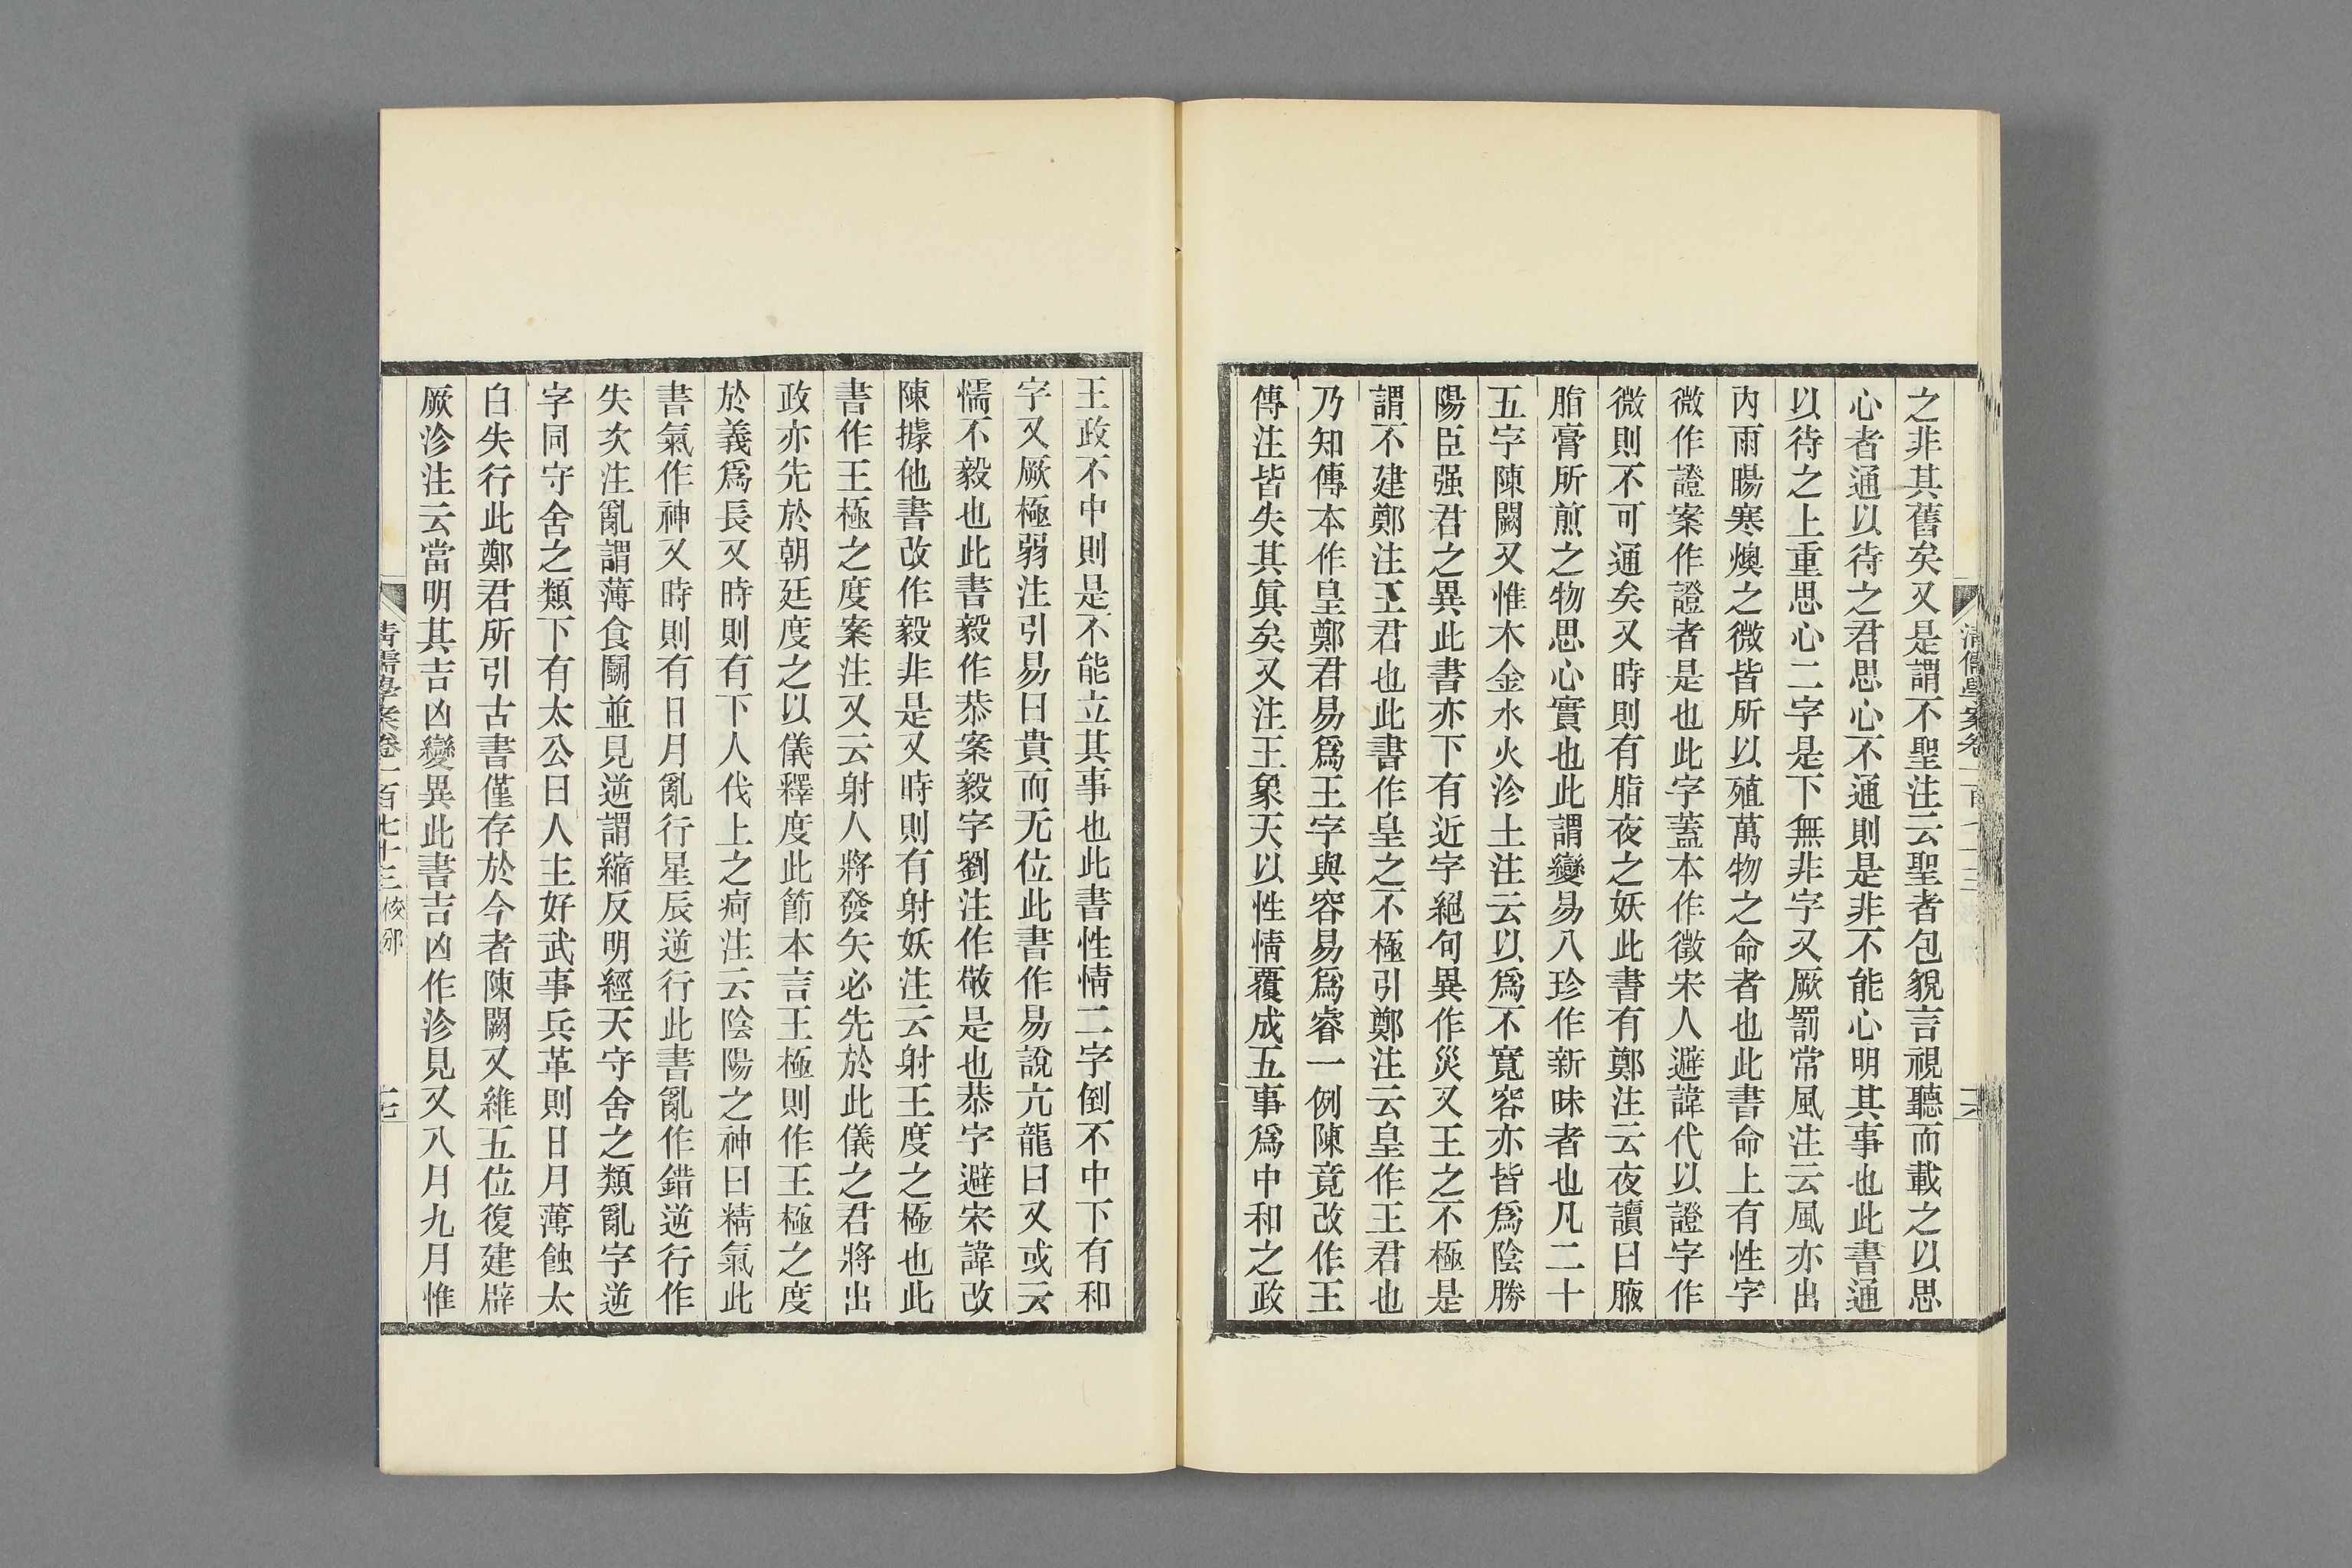 之非其舊矣又是謂不聖注云聖者包貌言視聽而載之以思
心者通以待之君思心不通則是非不能心明其事也此書通
以待之上重思心二字是下無非字又厥罰常風注云風亦出
內雨暘寒燠之微皆所以殖萬物之命者也此書命上有性字
微作證案作證者是也此字蓋本作徵宋人避諱代以證字作
微則不可通矣又時則有脂夜之妖此書有鄭注云夜讀曰腋
脂膏所煎之物思心實也此謂變易八珍作新味者也凡二十
五字陳闕又惟木金水火沴土注云以爲不寬容亦皆爲陰勝
陽臣强君之異此書亦下有近字絕句異作災又王之不極是
謂不建鄭注王君也此書作皇之不極引鄭注云皇作王君也
乃知傳本作皇鄭君易爲王字與容易爲睿一例陳竟改作王
傳注皆失其眞矣又注王象天以性情覆成五事爲中和之政
王政不中則是不能立其事也此書性情二字倒不中下有和
字又厥極弱注引易曰貴而无位此書作易說亢龍曰又或云
懦不毅也此書毅作恭案毅字劉注作敬是也恭字避宋諱改
陳據他書改作毅非是又時則有射妖注云射王度之極也此
書作王極之度案注又云射人將發矢必先於此儀之君將出
政亦先於朝廷度之以儀釋度此節本言王極則作王極之度
於義爲長又時則有下人伐上之痾注云陰陽之神曰精氣此
書氣作神又時則有日月亂行星辰逆行此書亂作錯逆行作
失次注亂謂薄食鬭並見逆謂縮反明經天守舍之類亂字逆
字同守舍之類下有太公曰人主好武事兵革則日月薄蝕太
白失行此鄭君所引古書僅存於今者陳闕又維五位復建辟
厥沴注云當明其吉凶變異此書吉凶作沴見又八月九月惟
清儒學案卷一百七十三 校邠
十七